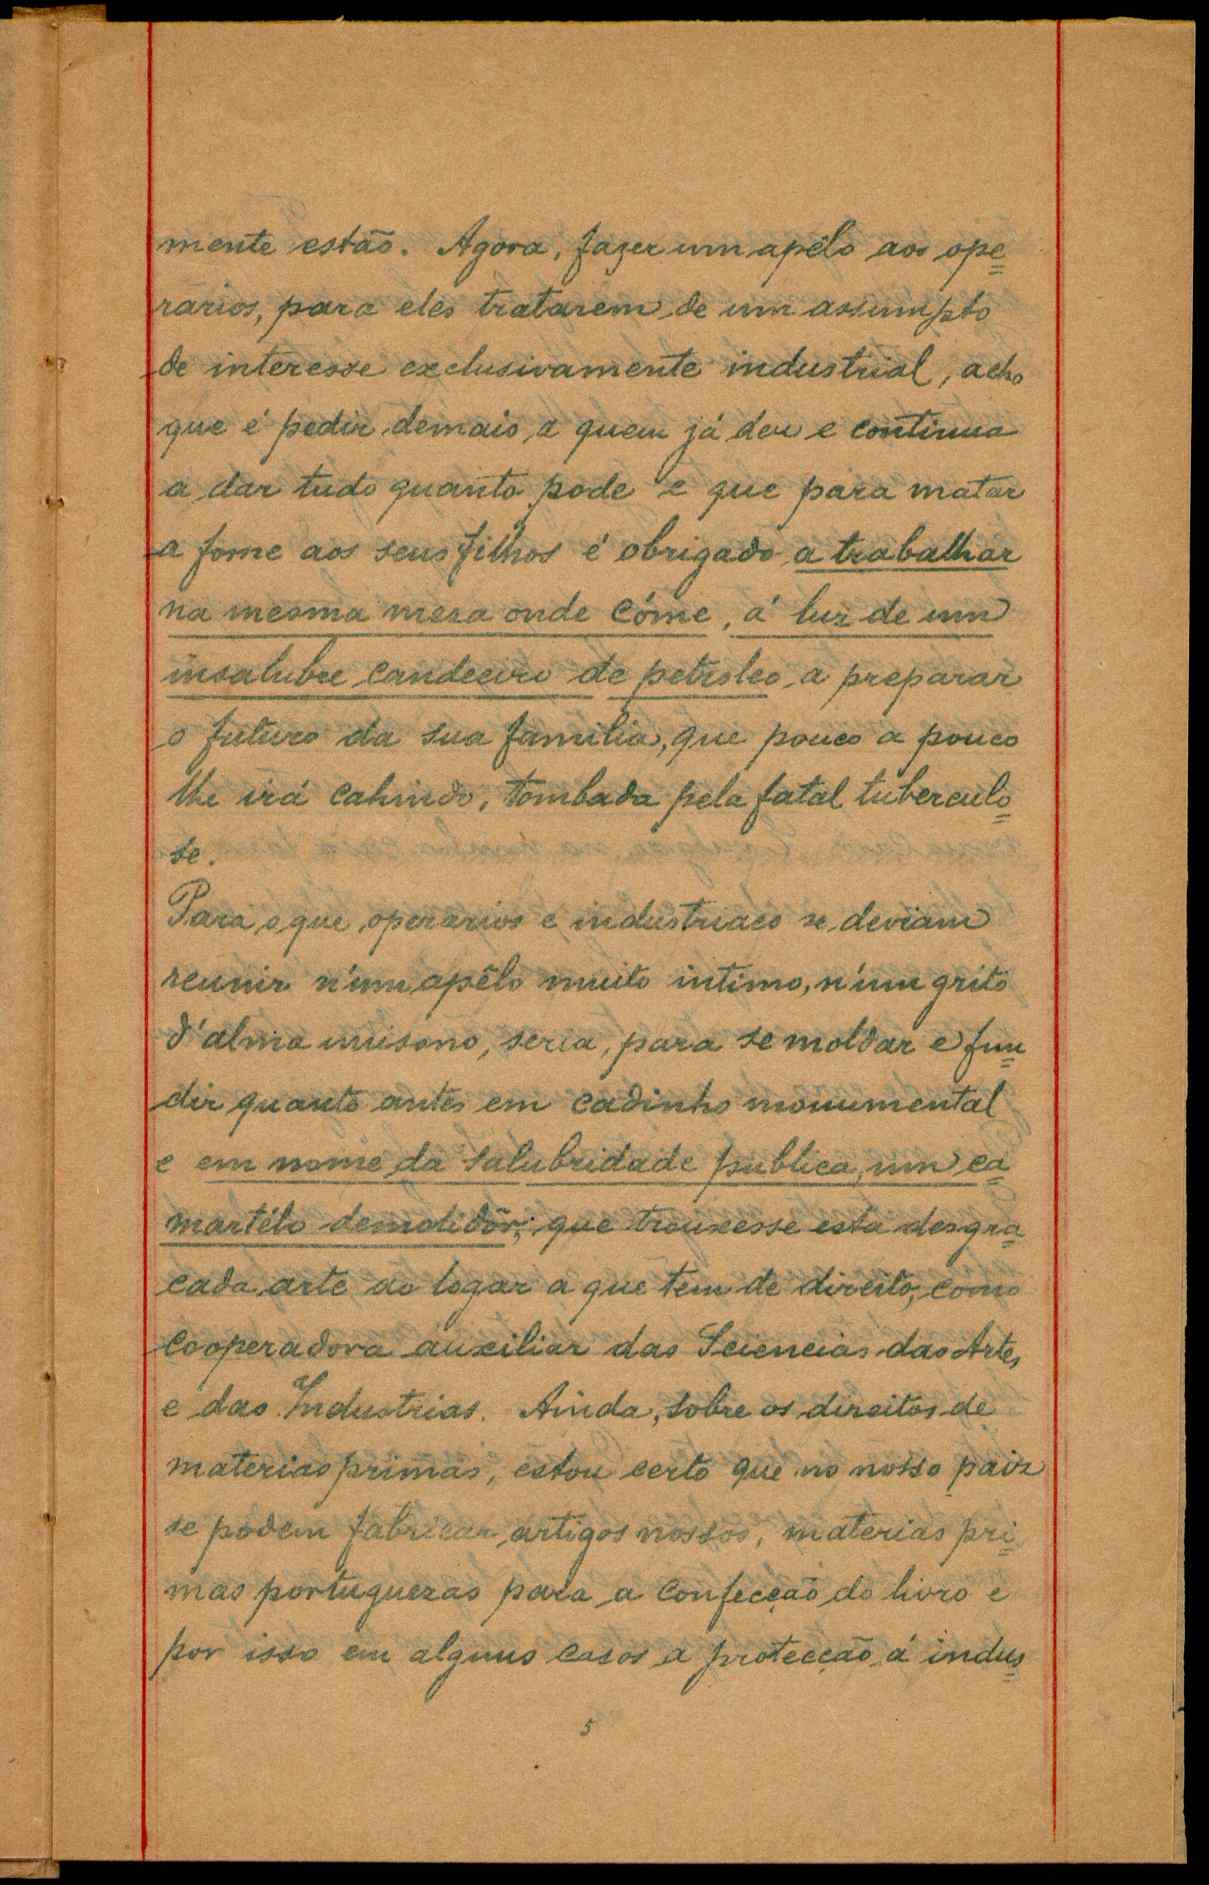 mente estão. Agora, fazer um apêlo aos ope=
rarios, para eles tratarem de um assumpto
de interesse exclusivamente industrial, acho
que é pedir demais a quem já deu e continua
a dar tudo quanto pode e que para matar
a fome aos seus filhos é obrigado a trabalhar
na mesma mesa onde cóme, á luz de um
insalubre candeeiro de petroleo a preparar
o futuro da sua familia, que pouco a pouco
lhe irá cahindo, tombada pela fatal tuberculo=
se.
Para o que operarios e industriaes se deviam
reunir n'um apêlo muito intimo, n'um grito
d'alma unisono, seria, para se moldar e fun=
dir quanto antes em cadinho monumental
e em nome da salubridade publica, um ca=
martélo demolidôr; que trouxesse esta desgra=
çada arte ao logar a que tem de direito, como
cooperadora auxiliar das Sciencias das Artes,
e das Industrias. Ainda, sobre os direitos de
materias primas, estou certo que no nosso paiz
se podem fabricar artigos nossos, materias pri=
mas portuguezas para a confecção do livro e
por isso em alguns casos a protecção á indus=
5